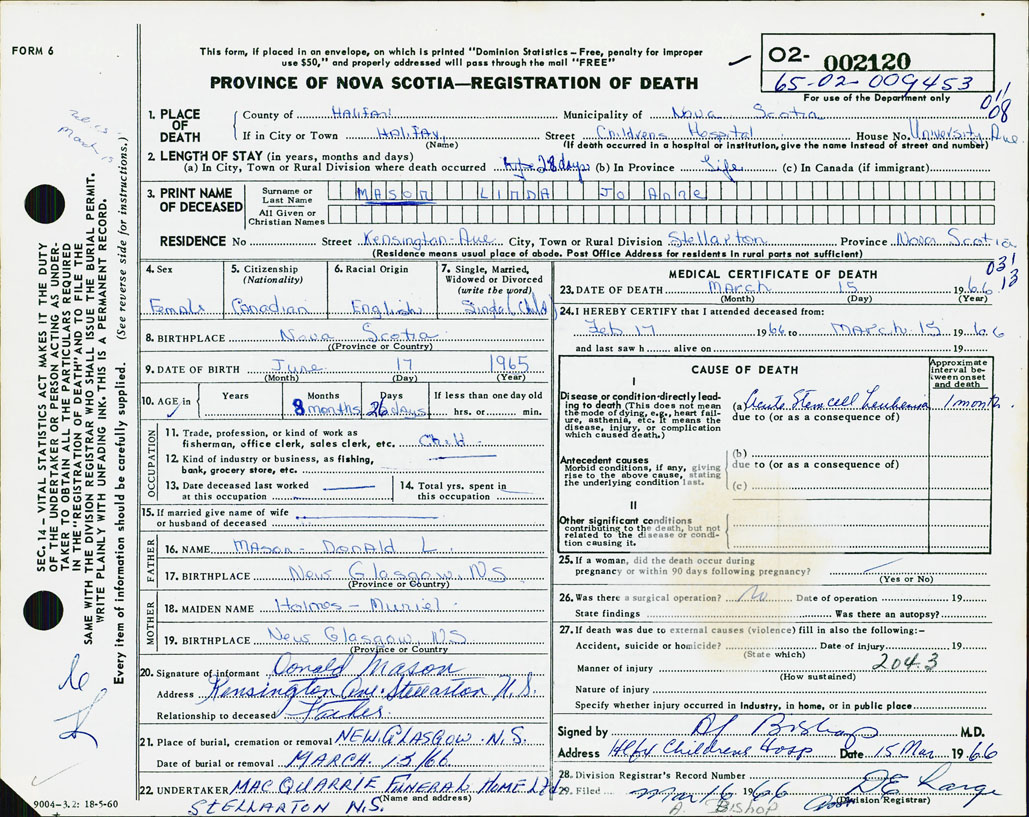 FORM 6
This form, if placed in an envelope, on which is printed "Dominion Statistics – Free, penalty for improper
use $50," and properly addressed will pass through the mail "FREE"
PROVINCE OF NOVA SCOTIA—REGISTRATION OF DEATH
02- 002120
65-02-009453
For use of the Department only
011
08
1. PLACE OF DEATH
County of Halifax Municipality of Nova Scotia
If in City or Town Halifax Street Childrens Hospital House No. University Ave.
(Name) (If death occurred in a hospital or institution, give the name instead of street and number)
2. LENGTH OF STAY (in years, months and days)
(a) In City, Town or Rural Division where death occurred 28 days (b) In Province Life (c) In Canada (if immigrant)
3. PRINT NAME OF DECEASED
Surname or Last Name MASON LINDA JO ANNE
All Given or Christian Names
RESIDENCE No Street Kensington Ave City, Town or Rural Division Stellarton Province Nova Scotia
(Residence means usual place of abode. Post Office Address for residents in rural parts not sufficient)
031
13
4. Sex
Female
5. Citizenship
(Nationality)
Canadian
6. Racial Origin
English
7. Single, Married,
Widowed or Divorced
(write the word)
Single (Child)
8. BIRTHPLACE Nova Scotia
(Province or Country)
9. DATE OF BIRTH June 17 1965
(Month) (Day) (Year)
10. AGE in Years Months Days If less than one day old
8 months 26 days hrs. or min.
OCCUPATION
11. Trade, profession, or kind of work as
fisherman, office clerk, sales clerk, etc. Child
12. Kind of industry or business, as fishing,
bank, grocery store, etc.
13. Date deceased last worked
at this occupation
14. Total yrs. spent in
this occupation
15. If married give name of wife
or husband of deceased
FATHER
16. NAME Mason - Donald L.
17. BIRTHPLACE New Glasgow, N.S
(Province or Country)
MOTHER
18. MAIDEN NAME Holmes - Muriel
19. BIRTHPLACE New Glasgow, N.S
(Province or Country
20. Signature of informant Donald Mason
Address Kensington Ave. Stellarton N.S.
Relationship to deceased Father
21. Place of burial, cremation or removal NEW GLASGOW N.S.
Date of burial or removal MARCH. 15/66
22. UNDERTAKER MACQUARRIE FUNERAL HOME Ltd
(Name and address)
STELLARTON N.S.
MEDICAL CERTIFICATE OF DEATH
23. DATE OF DEATH March 15 1966
(Month) (Day) (Year)
24. I HEREBY CERTIFY that I attended deceased from:
Feb 17 1966 to March 15 1966
and last saw h alive on 19
CAUSE OF DEATH
Approximate
interval be-
tween onset
and death
I
Disease or condition directly lead-
ing to death (This does not mean
the mode of dying, e.g., heart fail-
ure, asthenia, etc. It means the
disease, injury, or complication
which caused death.)
(a) Acute Stem cell Leukemia 1 month
due to (or as a consequence of)
Antecedent causes
Morbid conditions, if any, giving
rise to the above cause, stating
the underlying condition last.
(b)
due to (or as a consequence of)
(c)
II
Other significant conditions
contributing to the death, but not
related to the disease or condi-
tion causing it.
25. If a woman, did the death occur during
pregnancy or within 90 days following pregnancy?
(Yes or No)
26. Was there a surgical operation? No Date of operation 19
State findings Was there an autopsy?
27. If death was due to external causes (violence) fill in also the following:–
Accident, suicide or homicide? Date of injury 19
(State which)
Manner of injury 204.3
(How sustained)
Nature of injury
Specify whether injury occurred in industry, in home, or in public place
Signed by Bishop M.D.
Address Hlfx Childrens Hosp Date 15 Mar 1966
28. Division Registrar's Record Number
29. Filed Mar 16 1966 DE Large
A. Bishop (Division Registrar)
SEC. 14 – VITAL STATISTICS ACT MAKES IT THE DUTY
OF THE UNDERTAKER OR PERSON ACTING AS UNDER-
TAKER TO OBTAIN ALL THE PARTICULARS REQUIRED
IN THE "REGISTRATION OF DEATH" AND TO FILE THE
SAME WITH THE DIVISION REGISTRAR WHO SHALL ISSUE THE BURIAL PERMIT.
WRITE PLAINLY WITH UNFADING INK. THIS IS A PERMANENT RECORD.
Every item of information should be carefully supplied. (See reverse side for instructions.)
9004-3.2: 18-5-60